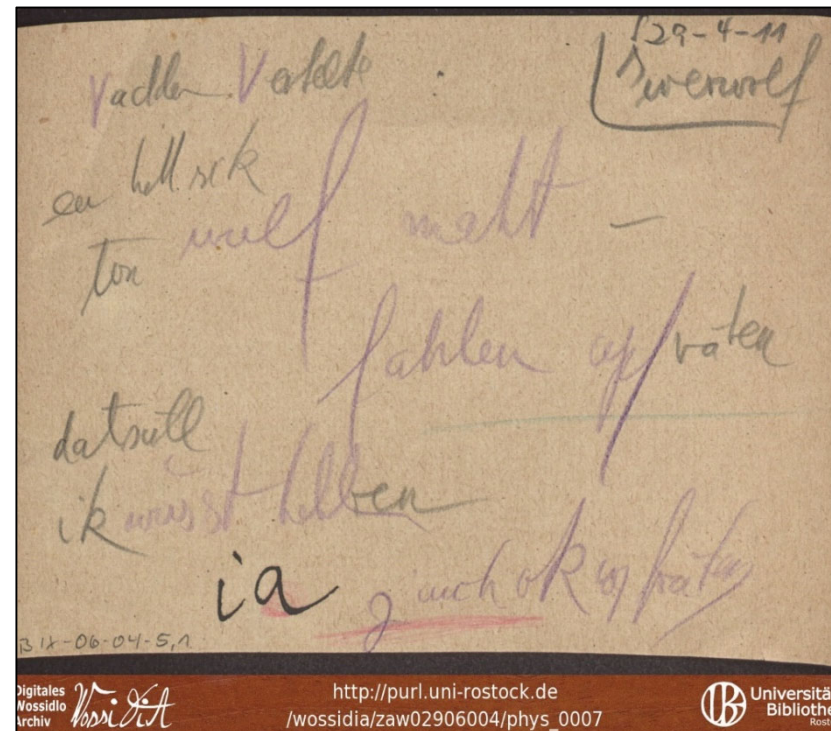 29-4-11
Werwolf
Vadder Vertellt
en hett sick
ton wulf makt –
fahlen upfräten
dat süll
ik wüsst hebben
ia
auch ok upfräten
B IX-06-04-5,1
Digitales
Wossidlo
Archiv
WossiDiA
http://purl.uni-rostock.de
/wossidia/zaw02906004/phys_0007
Universitä
Bibliothe
Rost